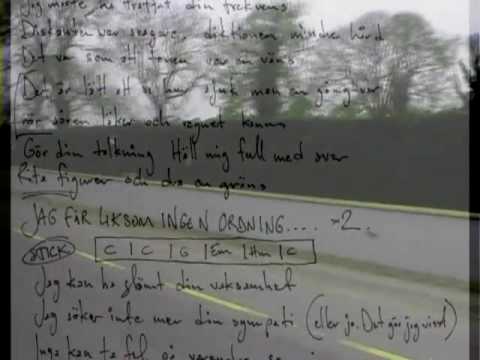 Jag måste ha träffat din frekvens
Diskanten var svagare, diktionen mindre hård
Det var som att tonen var en väns
Det är lätt att se hur sjuk man en gång var
När såren läker och regnet
Gör din tolkning Håll mig full med svar
Rita figurer och dra en gräns
JAG FÅR LIKSOM INGEN ORDNING.... -2.
STICK C | C | G | Em | Hm | C
Jag kan ha glömt din vaksamhet
Jag söker inte mer din sympati (eller jo. Det gör jag visst)
Inga kan ta fel